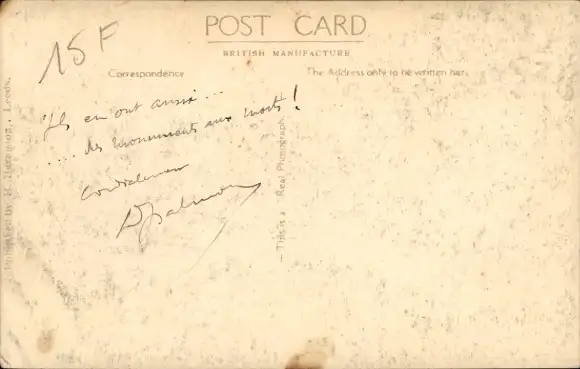 15F
POST CARD
BRITISH MANUFACTURE
Correspondence
The Address only to be written here.
Ils en ont aussi...
.... des monuments aux morts!
Cordialement
Salmon
This is a Real Photograph.
Published by H. Leeds.